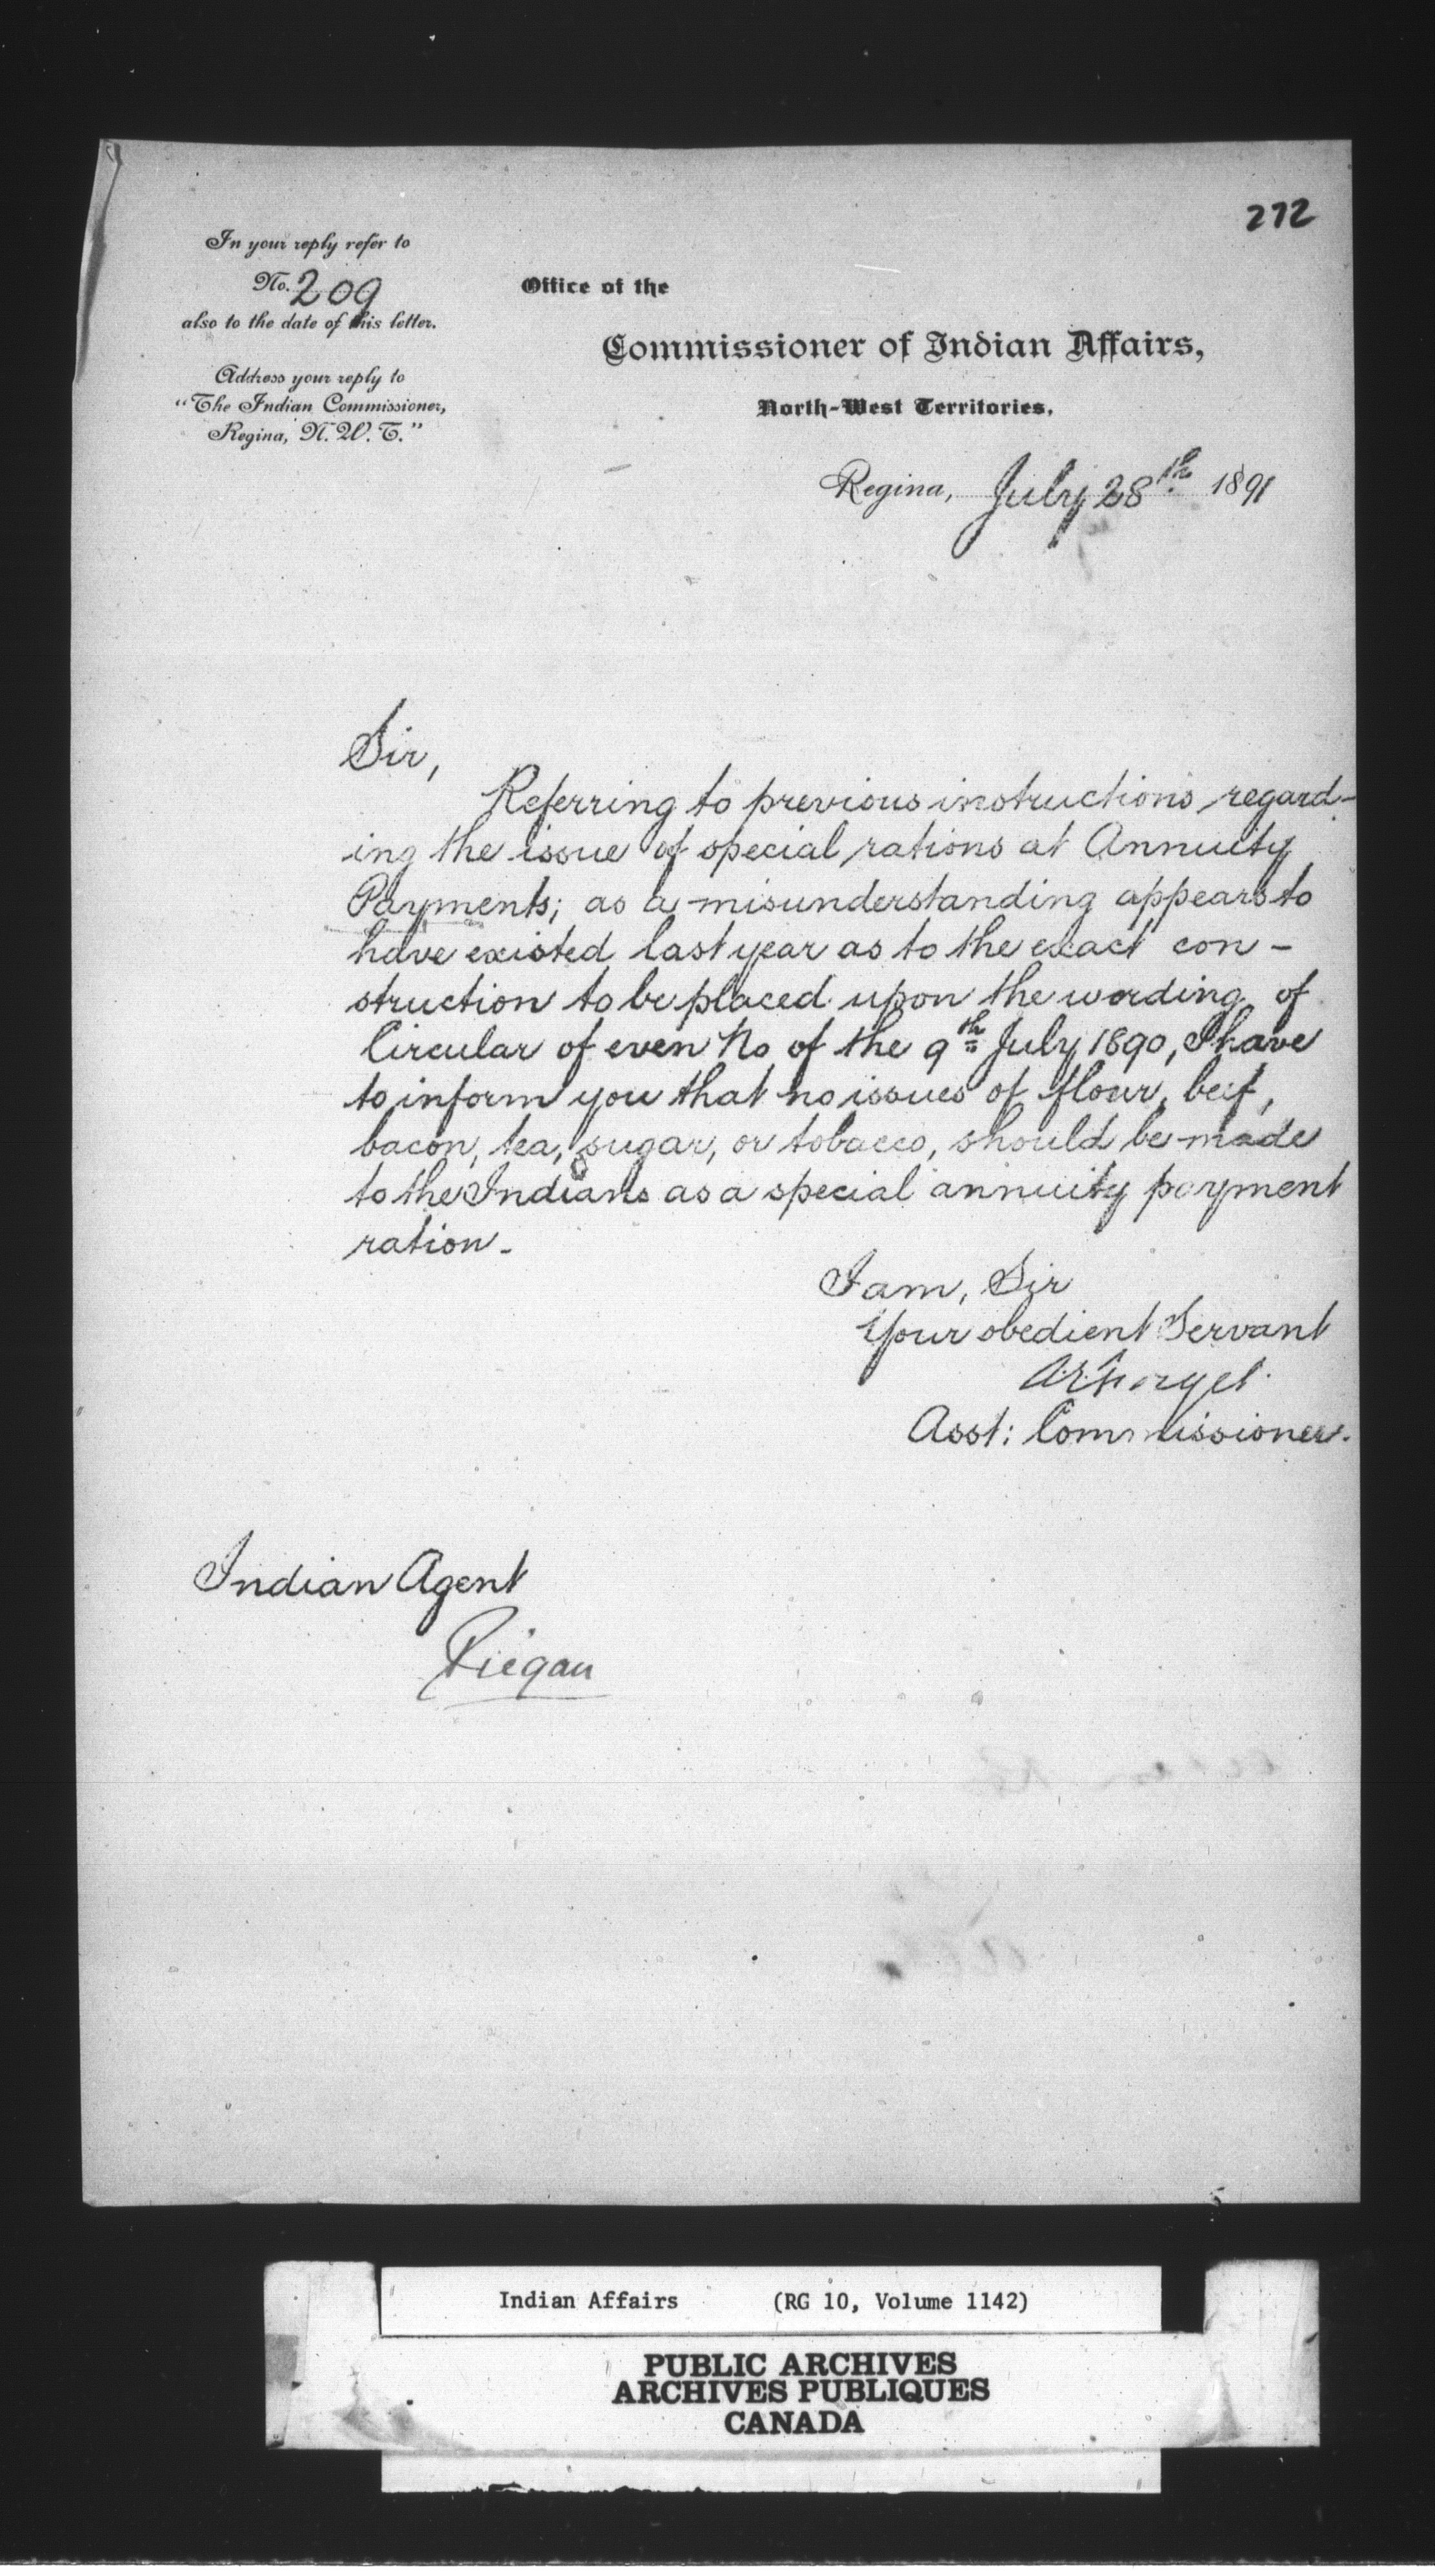 272
In your reply refer to
No. 209
also to the date of this letter.
Address your reply to
"The Indian Commissioner,
Regina, N. W. T."
Office of the
Commissioner of Indian Affairs,
North-West Territories.
Regina, July 28th 1891
Sir,
Referring to previous instructions regard-
ing the issue of special rations at Annuity
Payments; as a misunderstanding appears to
have existed last year as to the exact con-
struction to be placed upon the wording of
Circular of even No of the 9th July 1890, I have
to inform you that no issues of flour, beef,
bacon, tea, sugar, or tobacco, should be made
to the Indians as a special annuity payment
ration.
I am, Sir
Your obedient Servant
A.E. Forget.
Asst: Commissioner.
Indian Agent
Piegan
Indian Affairs (RG 10, Volume 1142)
PUBLIC ARCHIVES
ARCHIVES PUBLIQUES
CANADA